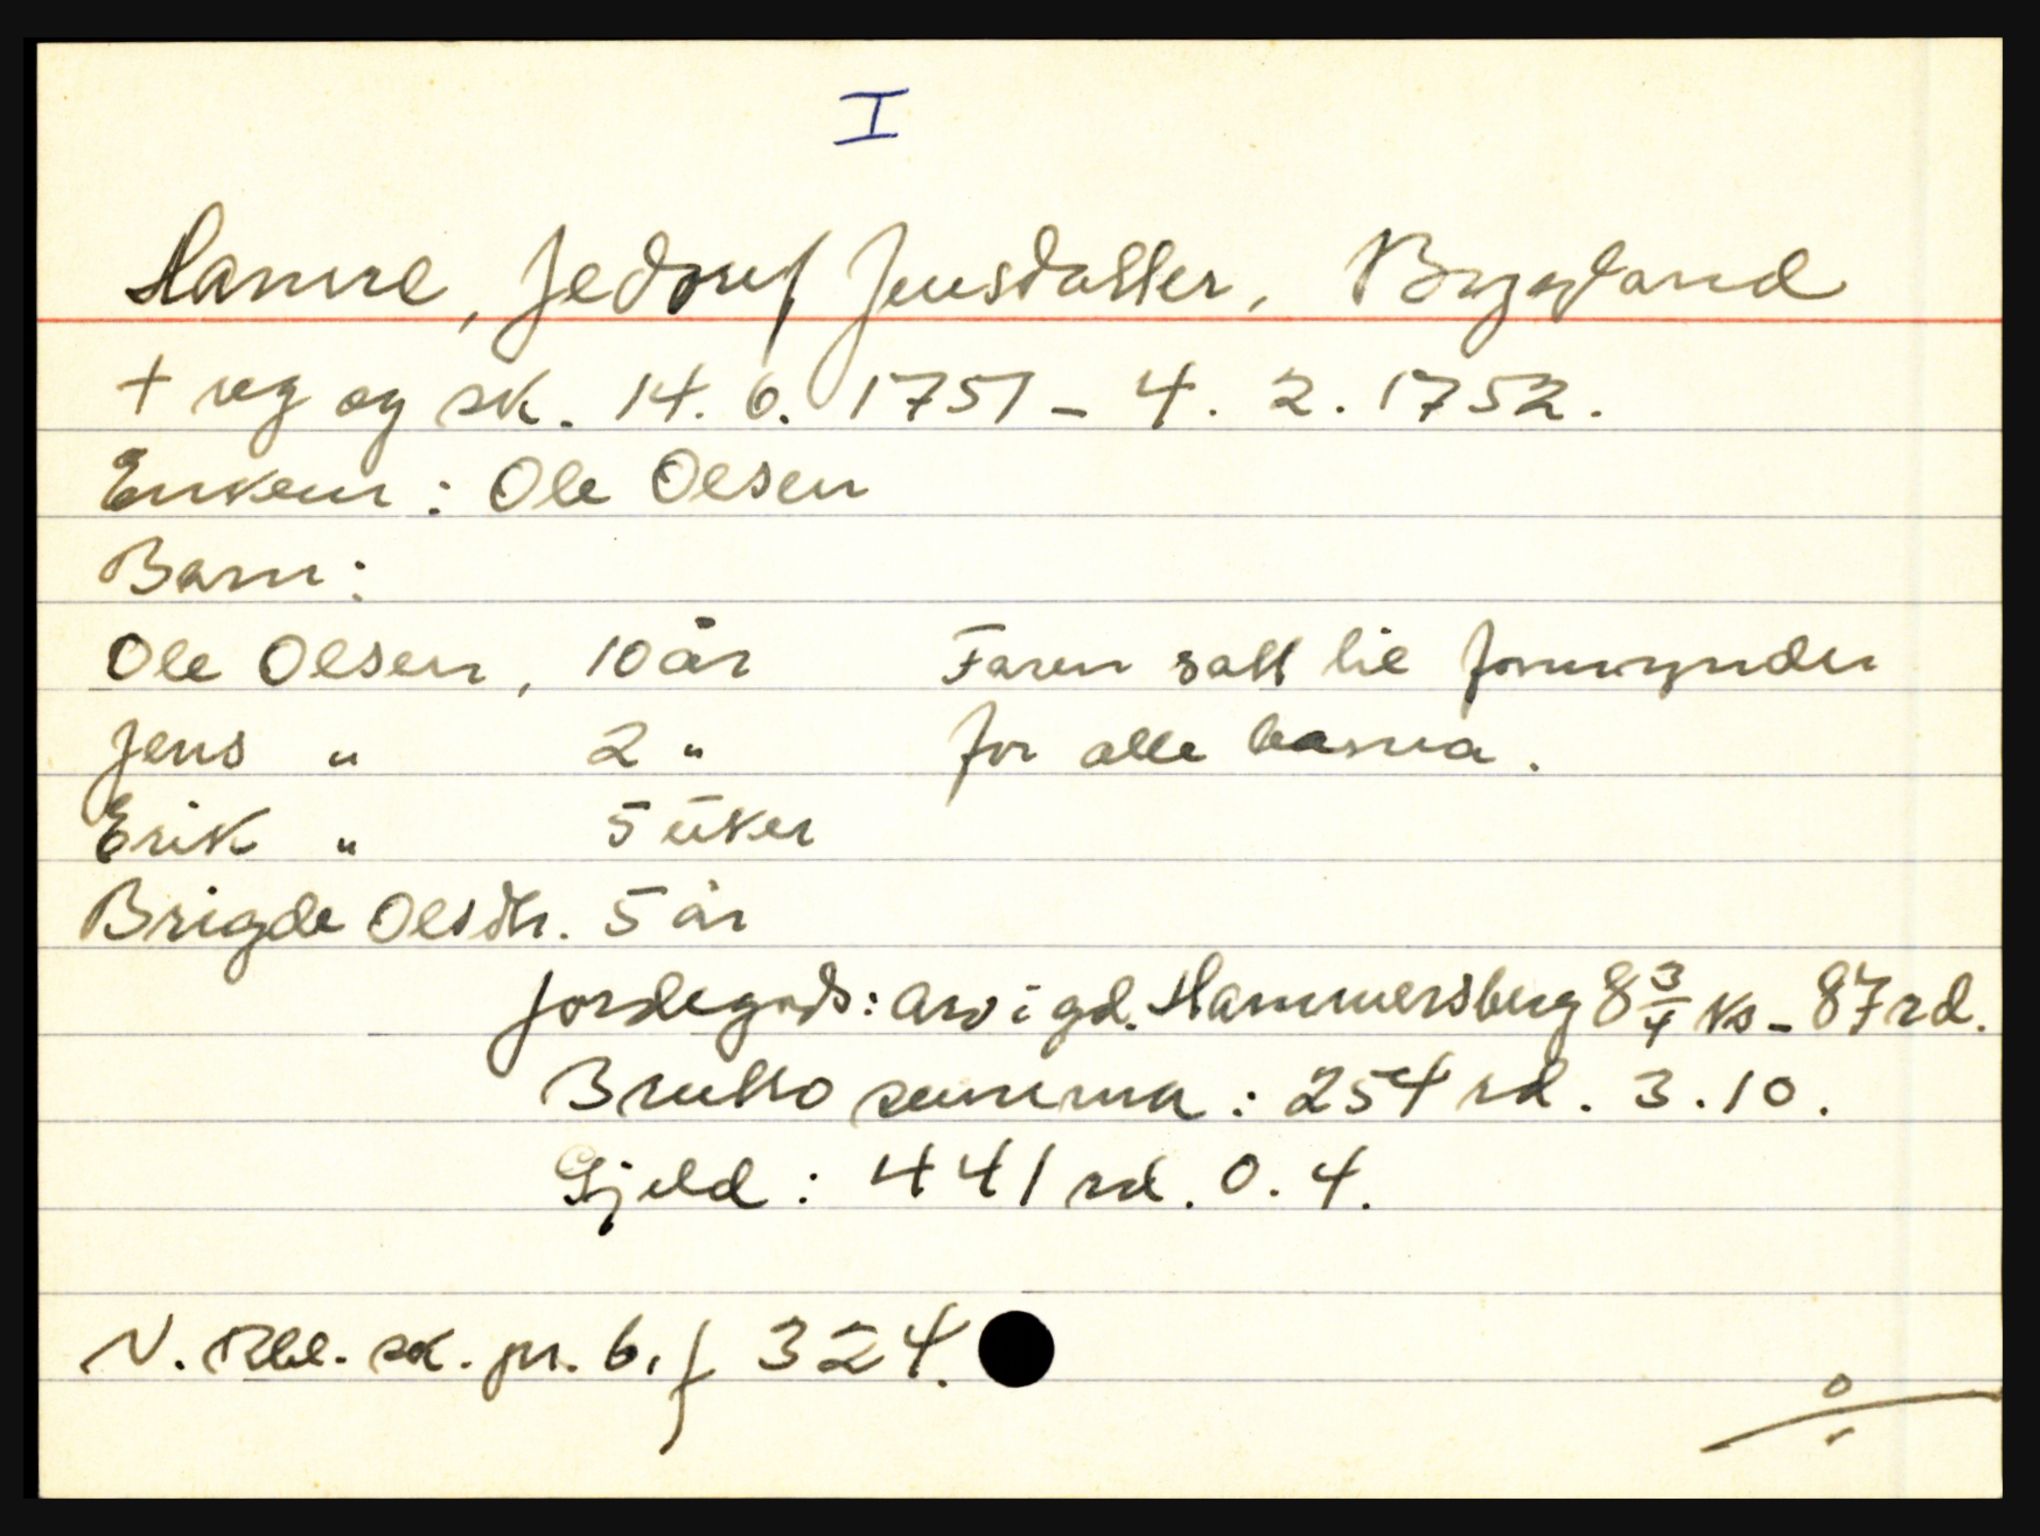 I
Hamre, Jensdatter, Bygland
+ reg og sk. 14. 6. 1751 - 4. 2. 1752.
Enkem: Ole Olsen
Barn:
Ole Olsen, 10 år Faren satt til formynder
Jens " 2 " for alle barna.
Erik " 5 uker
Brigde Olsdtr. 5 år
Jordegods: arv i gd. Hammersberg 8 3/4 ks - 87 rd.
Brutto summa: 254 rd. 3. 10.
Gjeld: 441 rd. 0. 4.
N. Rbl. sk. pr. 6, f 324.